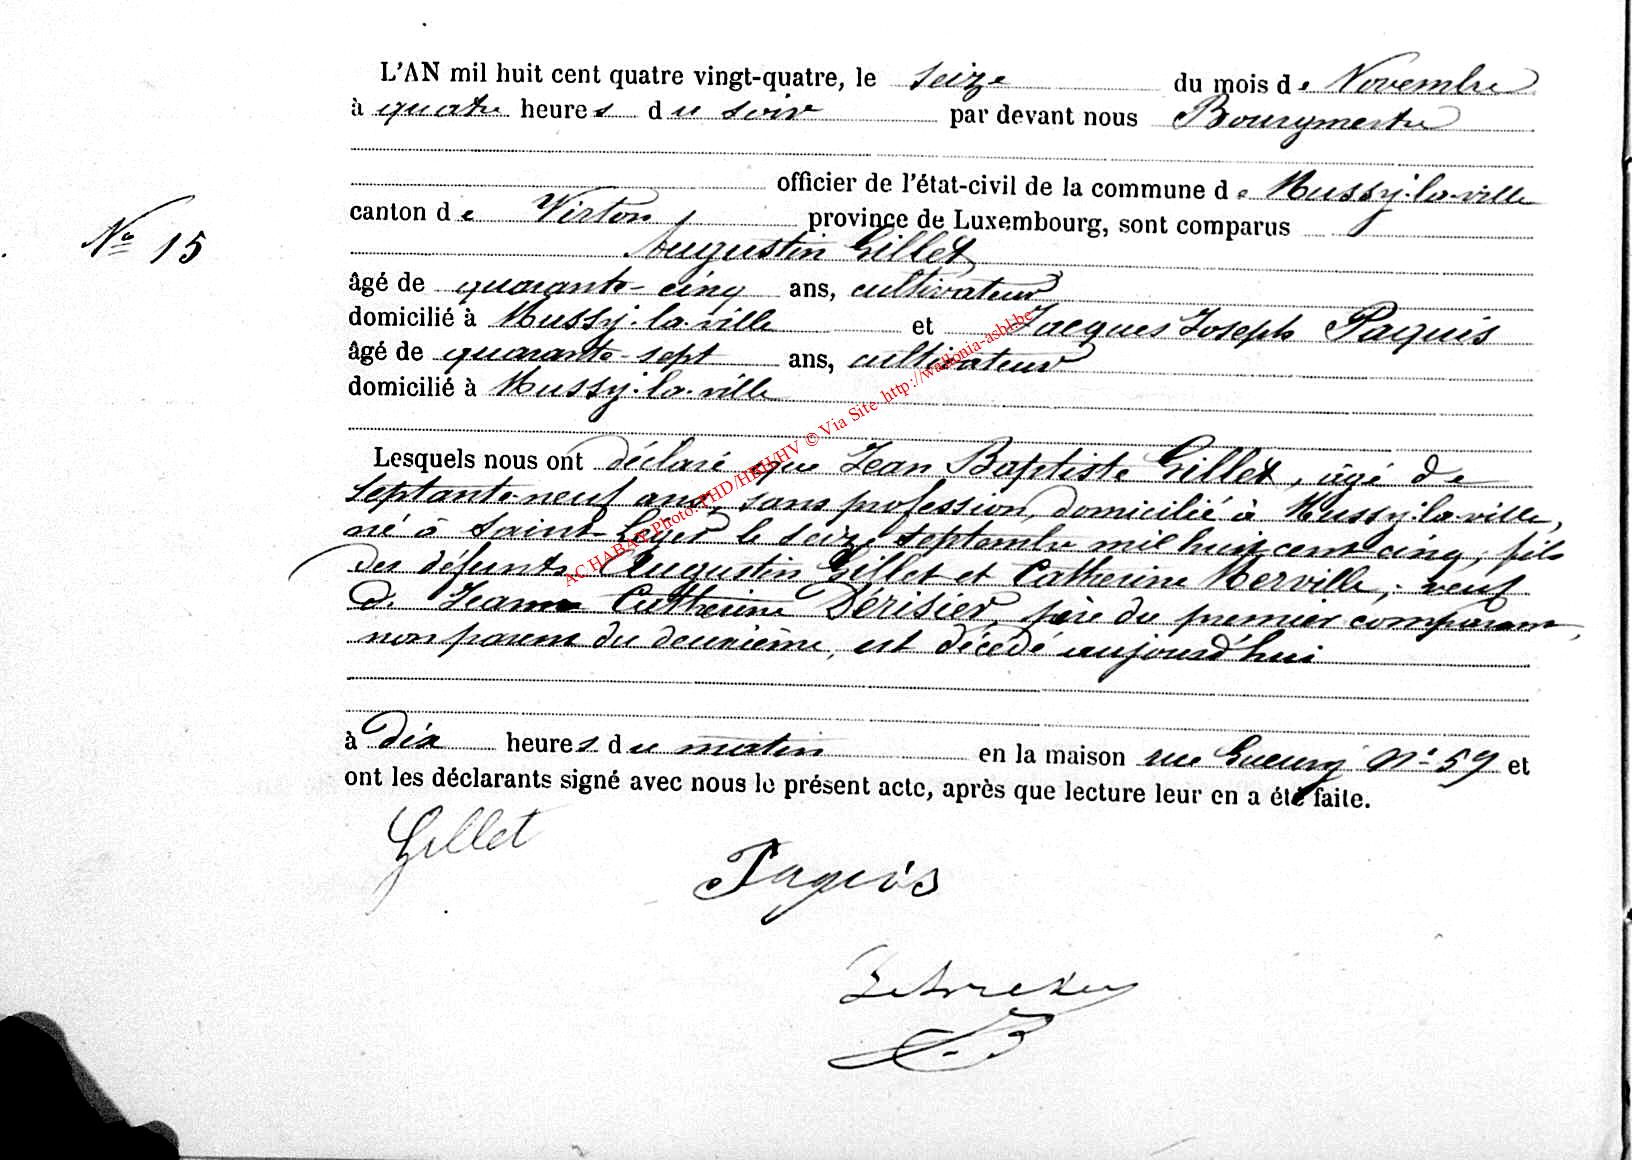 L'AN mil huit cent quatre vingt-quatre, le seize du mois de Novembre
à quatre heures du soir par devant nous Bourgmestre
officier de l'état-civil de la commune de Mussy-la-ville
canton de Virton, province de Luxembourg, sont comparus
N° 15
Augustin Gillet
âgé de quarante-cinq ans, cultivateur
domicilié à Mussy-la-ville et Jacques Joseph Paquis
âgé de quarante-sept ans, cultivateur
domicilié à Mussy-la-ville
Lesquels nous ont déclaré que Jean Baptiste Gillet, âgé de
septante-neuf ans, sans profession, domicilié à Mussy-la-ville,
né à Saint-Léger le seize septembre mil huit cent cinq, fils
des défunts Augustin Gillet et Catherine Merville, veuf
de Jeanne Catherine Dérisier, père du premier comparant,
non parent du deuxième, est décédé aujourd'hui
à dix heures du matin en la maison rue N° 59 et
ont les déclarants signé avec nous le présent acte, après que lecture leur en a été faite.
Gillet
Paquis
AC HABAY Photo: PHD/HBH/HV © Via Site http://wallonia-asbl.be